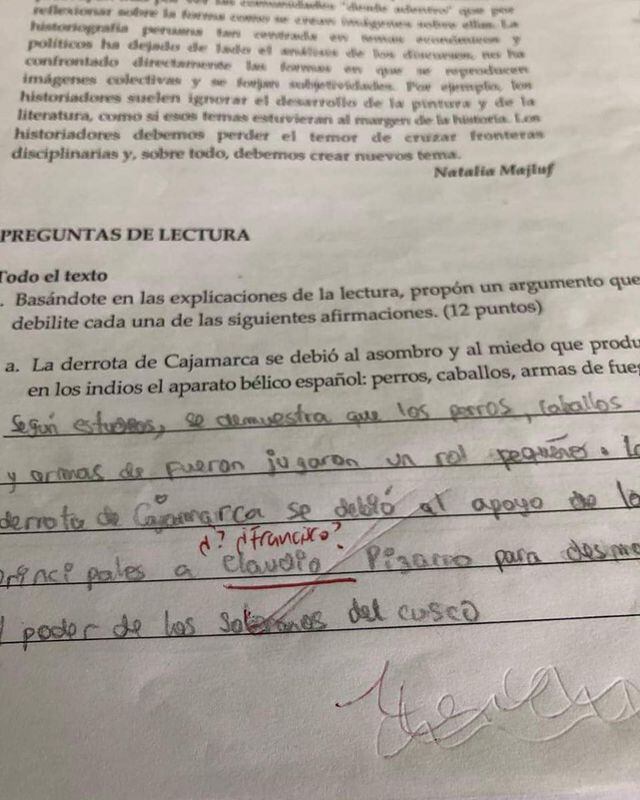 reflexionar sobre la forma como se crean imágenes sobre ellas. La
historiografía peruana tan centrada en temas económicos y
políticos ha dejado de lado el análisis de los discursos, no ha
confrontado directamente las formas en que se reproducen
imágenes colectivas y se forjan subjetividades. Por ejemplo, los
historiadores suelen ignorar el desarrollo de la pintura y de la
literatura, como si esos temas estuvieran al margen de la historia. Los
historiadores debemos perder el temor de cruzar fronteras
disciplinarias y, sobre todo, debemos crear nuevos tema.
Natalia Majluf
PREGUNTAS DE LECTURA
Todo el texto
. Basándote en las explicaciones de la lectura, propón un argumento que
debilite cada una de las siguientes afirmaciones. (12 puntos)
a. La derrota de Cajamarca se debió al asombro y al miedo que produ
en los indios el aparato bélico español: perros, caballos, armas de fue
Según estudios, se demuestra que los perros, caballos
y armas de fueron jugaron un rol pequeño. La
derrota de Cajamarca se debió al apoyo de lo
¿? ¿Francisco?
principales a Claudio Pizarro para desmo
l poder de los soberanos del cusco